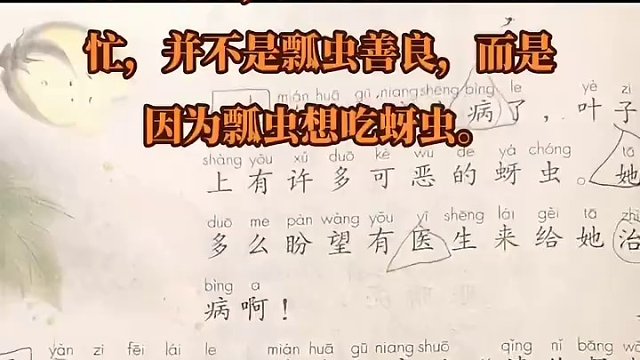 忙，并不是瓢虫善良，而是
mián huā gū niang shēng bìng le yè zi
病了，叶子
因为瓢虫想吃蚜虫。
shàng yǒu xǔ duō kě wù de yá chóng tā
上有许多可恶的蚜虫。她
duō me pàn wàng yǒu yī shēng lái gěi tā zhì
多么盼望有医生来给她治
bìng a
病啊！
yàn zi fēi lái le mián huā gū niang shuō qǐng nǐ bāng